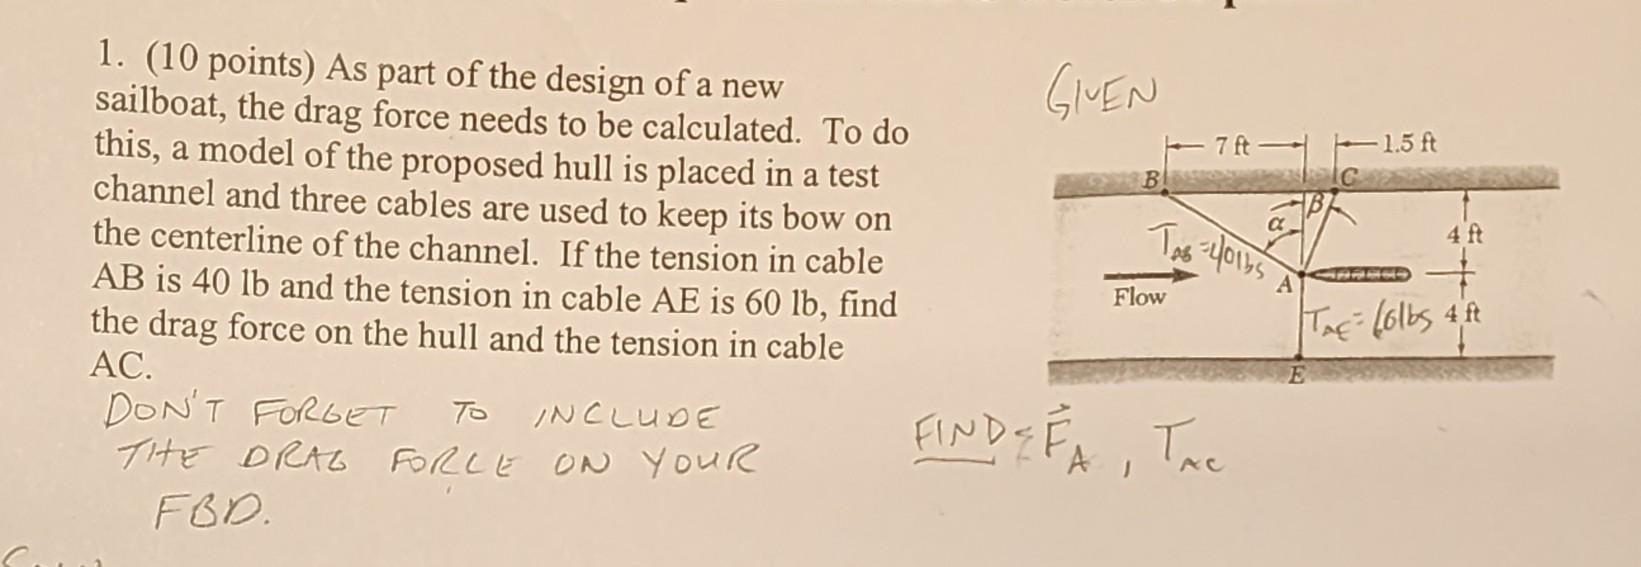 1. (10 points) As part of the design of a new
sailboat, the drag force needs to be calculated. To do
this, a model of the proposed hull is placed in a test
channel and three cables are used to keep its bow on
the centerline of the channel. If the tension in cable
AB is 40 lb and the tension in cable AE is 60 lb, find
the drag force on the hull and the tension in cable
AC.
DON'T FORGET TO INCLUDE
THE DRAG FORCE ON YOUR
FBD.
GIVEN
7 ft
1.5 ft
B
C
α
β
4 ft
T_AB = 40lbs
Flow
A
T_AE = 60lbs
4 ft
E
FIND: F_A, T_AC